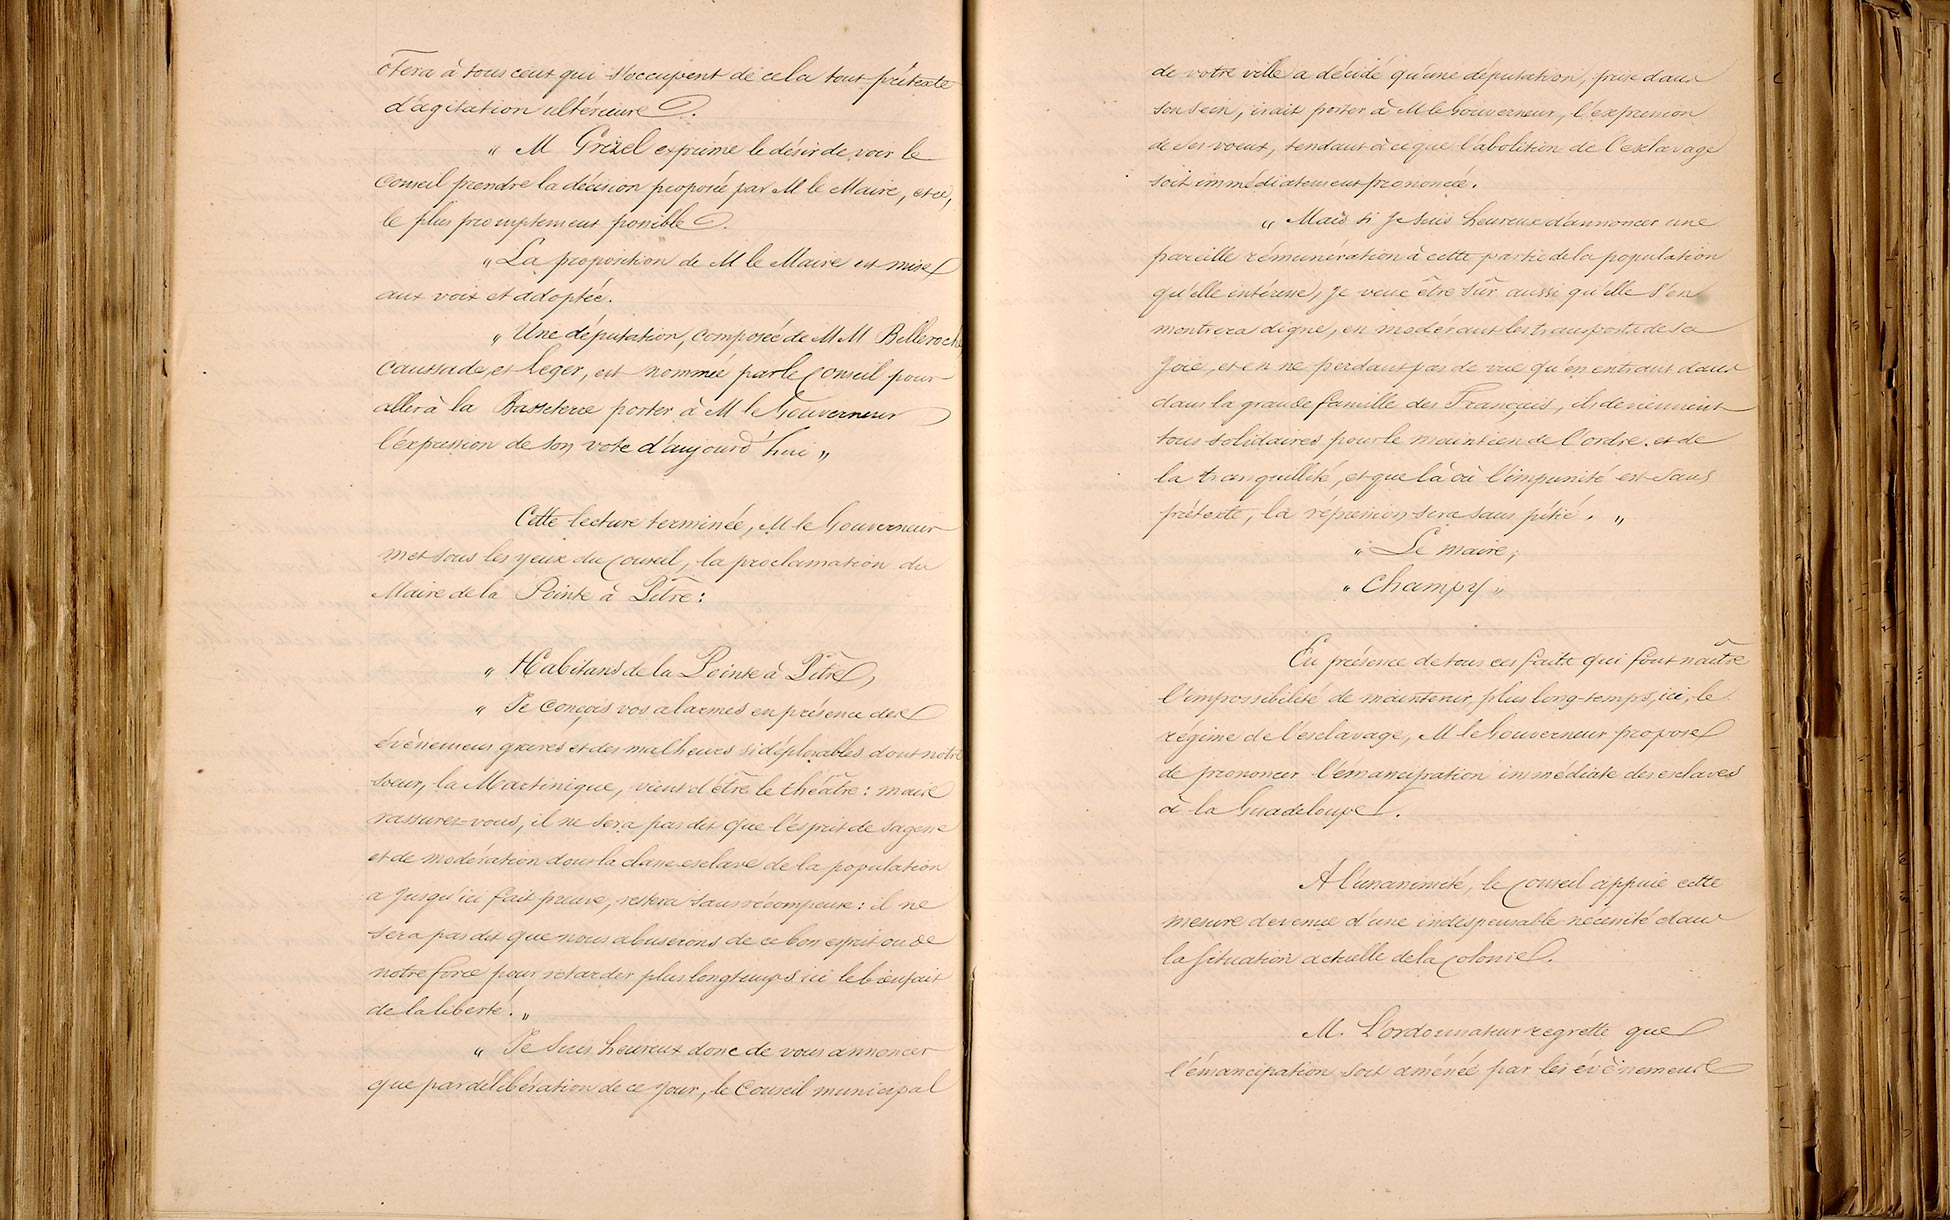 ôtera à tous ceux qui s'occupent de cela tout prétexte
d'agitation ultérieure.
" M Grizel exprime le désir de voir le
Conseil prendre la décision proposée par M le Maire, et ce,
le plus promptement possible.
" La proposition de M le Maire est mise
aux voix et adoptée.
" Une députation, composée de MM Belleroche
Caussade, et Léger, est nommée par le Conseil pour
aller à la Basseterre porter à M le Gouverneur
l'expression de son vote d'aujourd'hui "
Cette lecture terminée, M le Gouverneur
met sous les yeux du Conseil, la proclamation du
Maire de la Pointe à Pitre :
" Habitans de la Pointe à Pitre,
" Je conçois vos alarmes en présence des
évènemens graves et des malheurs si déplorables dont notre
soeur, la Martinique, vient d'être le théâtre : mais
rassurez-vous, il ne sera pas dit que l'esprit de sagesse
et de modération dont la classe esclave de la population
a jusqu'ici fait preuve, restera sans récompense : il ne
sera pas dit que nous abuserons de ce bon esprit ou de
notre force pour retarder plus longtemps ici le bienfait
de la liberté. "
" Je suis heureux donc de vous annoncer
que par délibération de ce jour, le Conseil municipal
de votre ville a décidé qu'une députation, prise dans
son sein, irait porter à M le Gouverneur, l'expression
de ses voeux, tendant à ce que l'abolition de l'esclavage
soit immédiatement prononcée.
" Mais si je suis heureux d'annoncer une
pareille rémunération à cette partie de la population
qu'elle intéresse, je veux être sûr aussi qu'elle s'en
montrera digne, en modérant les transports de sa
joie, et en ne perdant pas de vue qu'en entrant dans
dans la grande famille des Français, ils deviennent
tous solidaires pour le maintien de l'ordre et de
la tranquillité, et que là où l'impunité est sans
prétexte, la répression sera sans pitié. "
" Le maire,
" Champy "
En présence de tous ces faits qui font naître
l'impossibilité de maintenir, plus long-temps, ici, le
régime de l'esclavage, M le Gouverneur propose
de prononcer l'émancipation immédiate des esclaves
à la Guadeloupe.
A l'unanimité, le Conseil appuie cette
mesure devenue d'une indispensable nécessité dans
la situation actuelle de la colonie.
M. L'ordonnateur regrette que
l'émancipation soit aménée par les évènemens